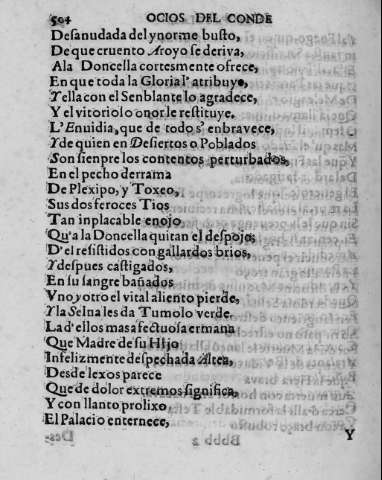 504 OCIOS DEL CONDE
Desanudada del ynorme busto,
De que cruento Aroyo se deriva,
A la Doncella cortesmente ofrece,
En que toda la Gloria l' atribuye,
Y ella con el Senblante lo agradece,
Y el vitoriolo onor le restituye.
L'Enuidia, que de todo s' enbravece,
Y de quien en Desiertos o Poblados
Son sienpre los contentos perturbados,
En el pecho derrama
De Plexipo, y Toxeo,
Sus dos feroces Tios
Tan inplacable enojo
Qu'a la Doncella quitan el despojo
D'el resistidos con gallardos brios,
Y despues castigados,
En su sangre bañados
Vno y otro el vital aliento pierde,
Y la Selua les da Tumolo verde.
La d'ellos mas afectuosa ermana
Que Madre de su Hijo
Infelizmente despechada Altea,
Desde lexos parece
Que de dolor extremos significa,
Y con llanto prolixo,
El Palacio enternece,
Bbbb 2 Y